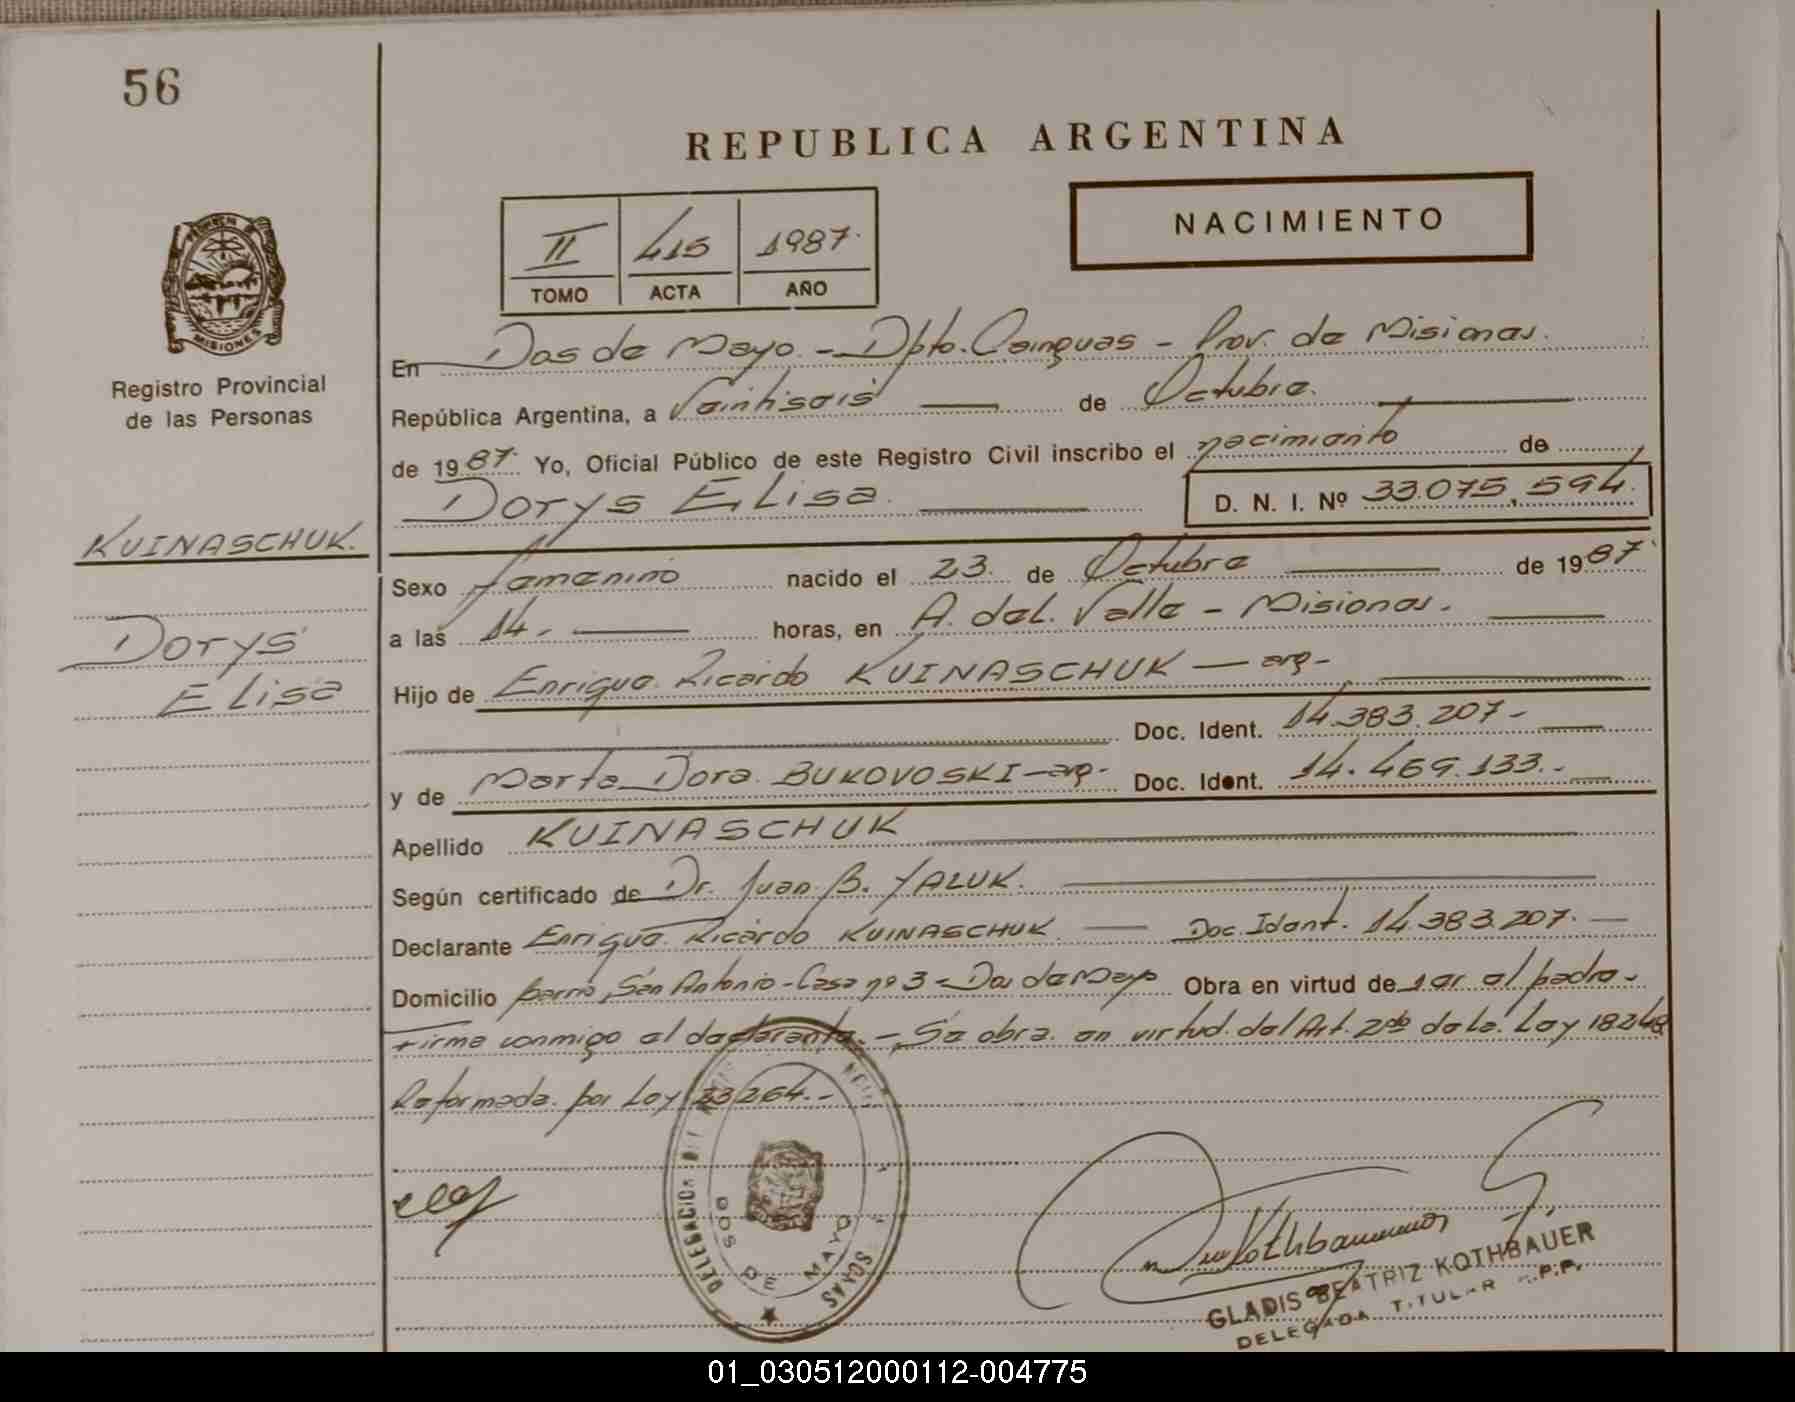 56
REPUBLICA ARGENTINA
NACIMIENTO
II 415 1987.
TOMO ACTA AÑO
MISIONES
Registro Provincial
de las Personas
KUINASCHUK.
Dorys
Elisa
En Dos de Mayo. - Dpto. Cainguas - Prov. de Misiones.
República Argentina, a Veintiseis de Octubre.
de 1987. Yo, Oficial Público de este Registro Civil inscribo el nacimiento de
Dorys Elisa. D. N. I. Nº 33.075.594.
Sexo femenino nacido el 23. de Octubre de 1987.
a las 14.- horas, en A. del. Valle - Misiones.
Hijo de Enrique. Ricardo KUINASCHUK — arg-
Doc. Ident. 14.383.207-
y de Marta Dora. BUKOVOSKI - arg- Doc. Ident. 14.469.133.-
Apellido KUINASCHUK
Según certificado de Dr. Juan B. YALUK.
Declarante Enrique. Ricardo KUINASCHUK — Doc. Ident. 14.383.207.-
Domicilio barrio San Antonio - Casa nº 3 - Dos de Mayo Obra en virtud de ser el padre-
Firma conmigo el declarante. - Se obra. en virtud. del Art. 2do de la. Ley 18248
Reformada. por Ley 23264.-
DELEGACION
DOS DE MAYO
GLADIS BEATRIZ KOTHBAUER
DELEGADA TITULAR R.P.P.
01_030512000112-004775